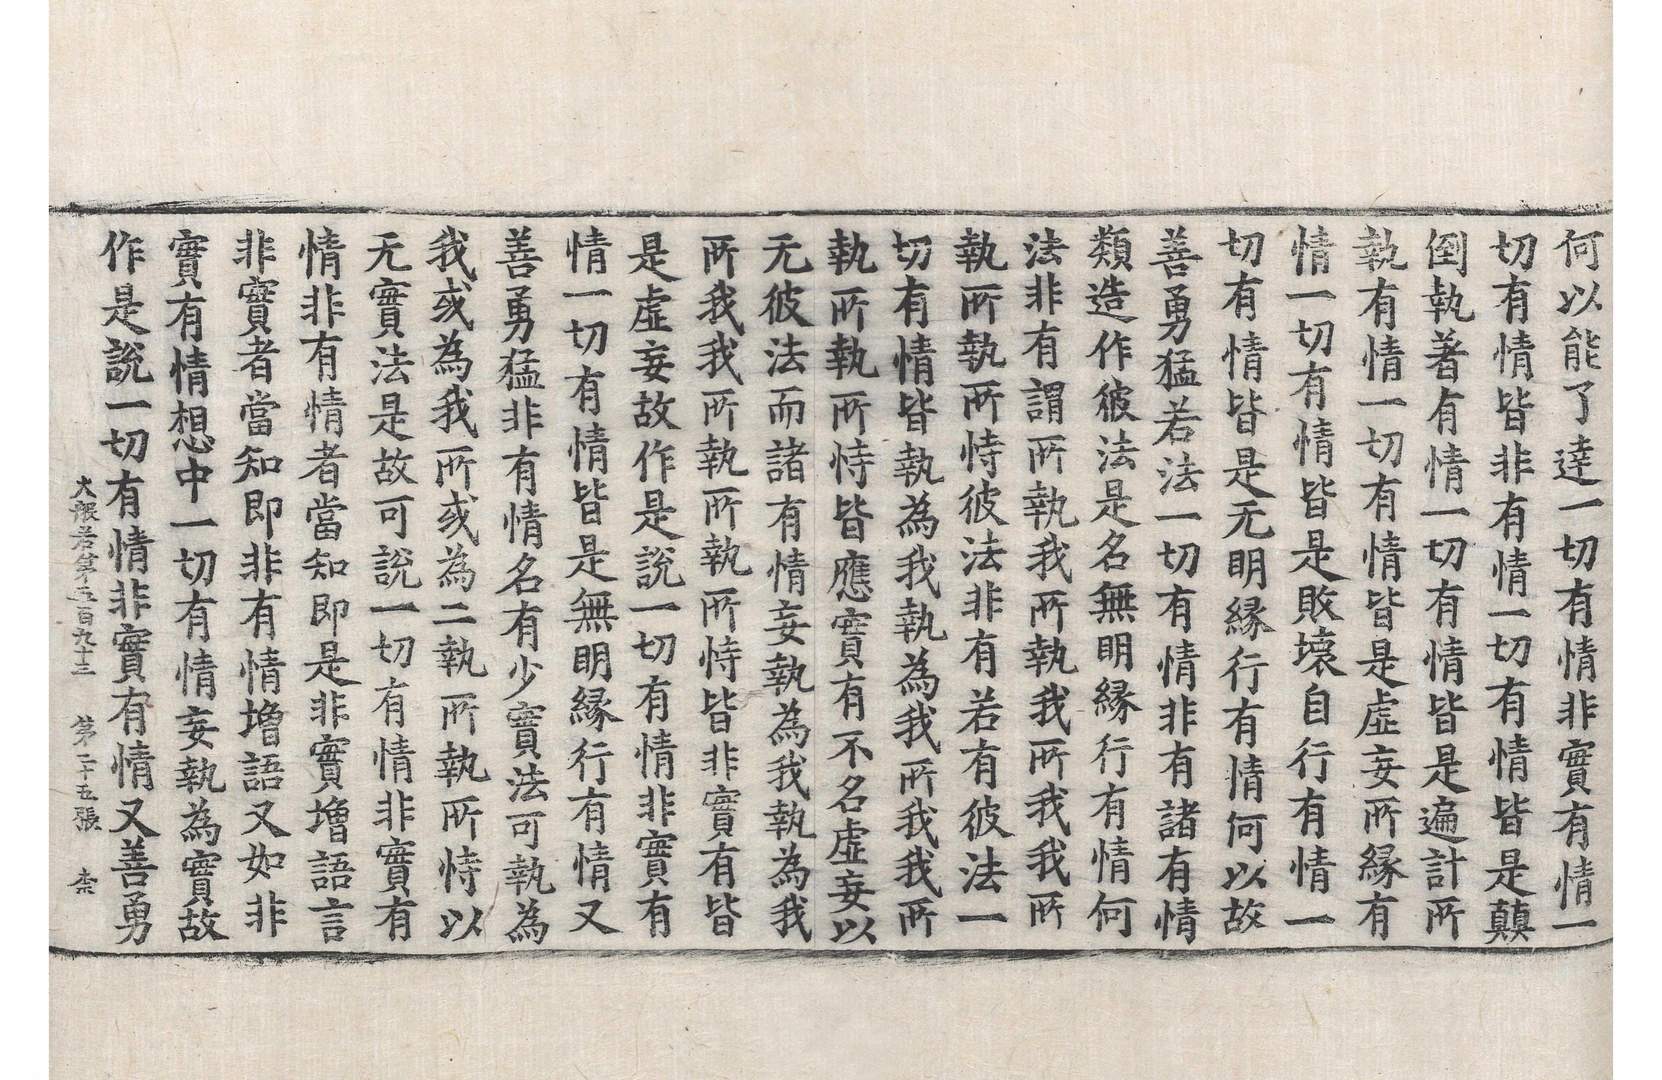 何以能了達一切有情非實有情一
切有情皆非有情一切有情皆是顛
倒執著有情一切有情皆是遍計所
執有情一切有情皆是虛妄所緣有
情一切有情皆是敗壞自行有情一
切有情皆是无明緣行有情何以故
善勇猛若法一切有情非有諸有情
類造作彼法是名無明緣行有情何
法非有謂所執我所執我所我我所
執所執所恃彼法非有若有彼法一
切有情皆執為我執為我所我我所
執所執所恃皆應實有不名虛妄以
无彼法而諸有情妄執為我執為我
所我我所執所執所恃皆非實有皆
是虛妄故作是說一切有情非實有
情一切有情皆是無明緣行有情又
善勇猛非有情名有少實法可執為
我或為我所或為二執所執所恃以
无實法是故可說一切有情非實有
情非有情者當知即是非實增語言
非實者當知即非有情增語又如非
實有情想中一切有情妄執為實故
作是說一切有情非實有情又善勇
大般若第五百九十三 第二十五張 柰